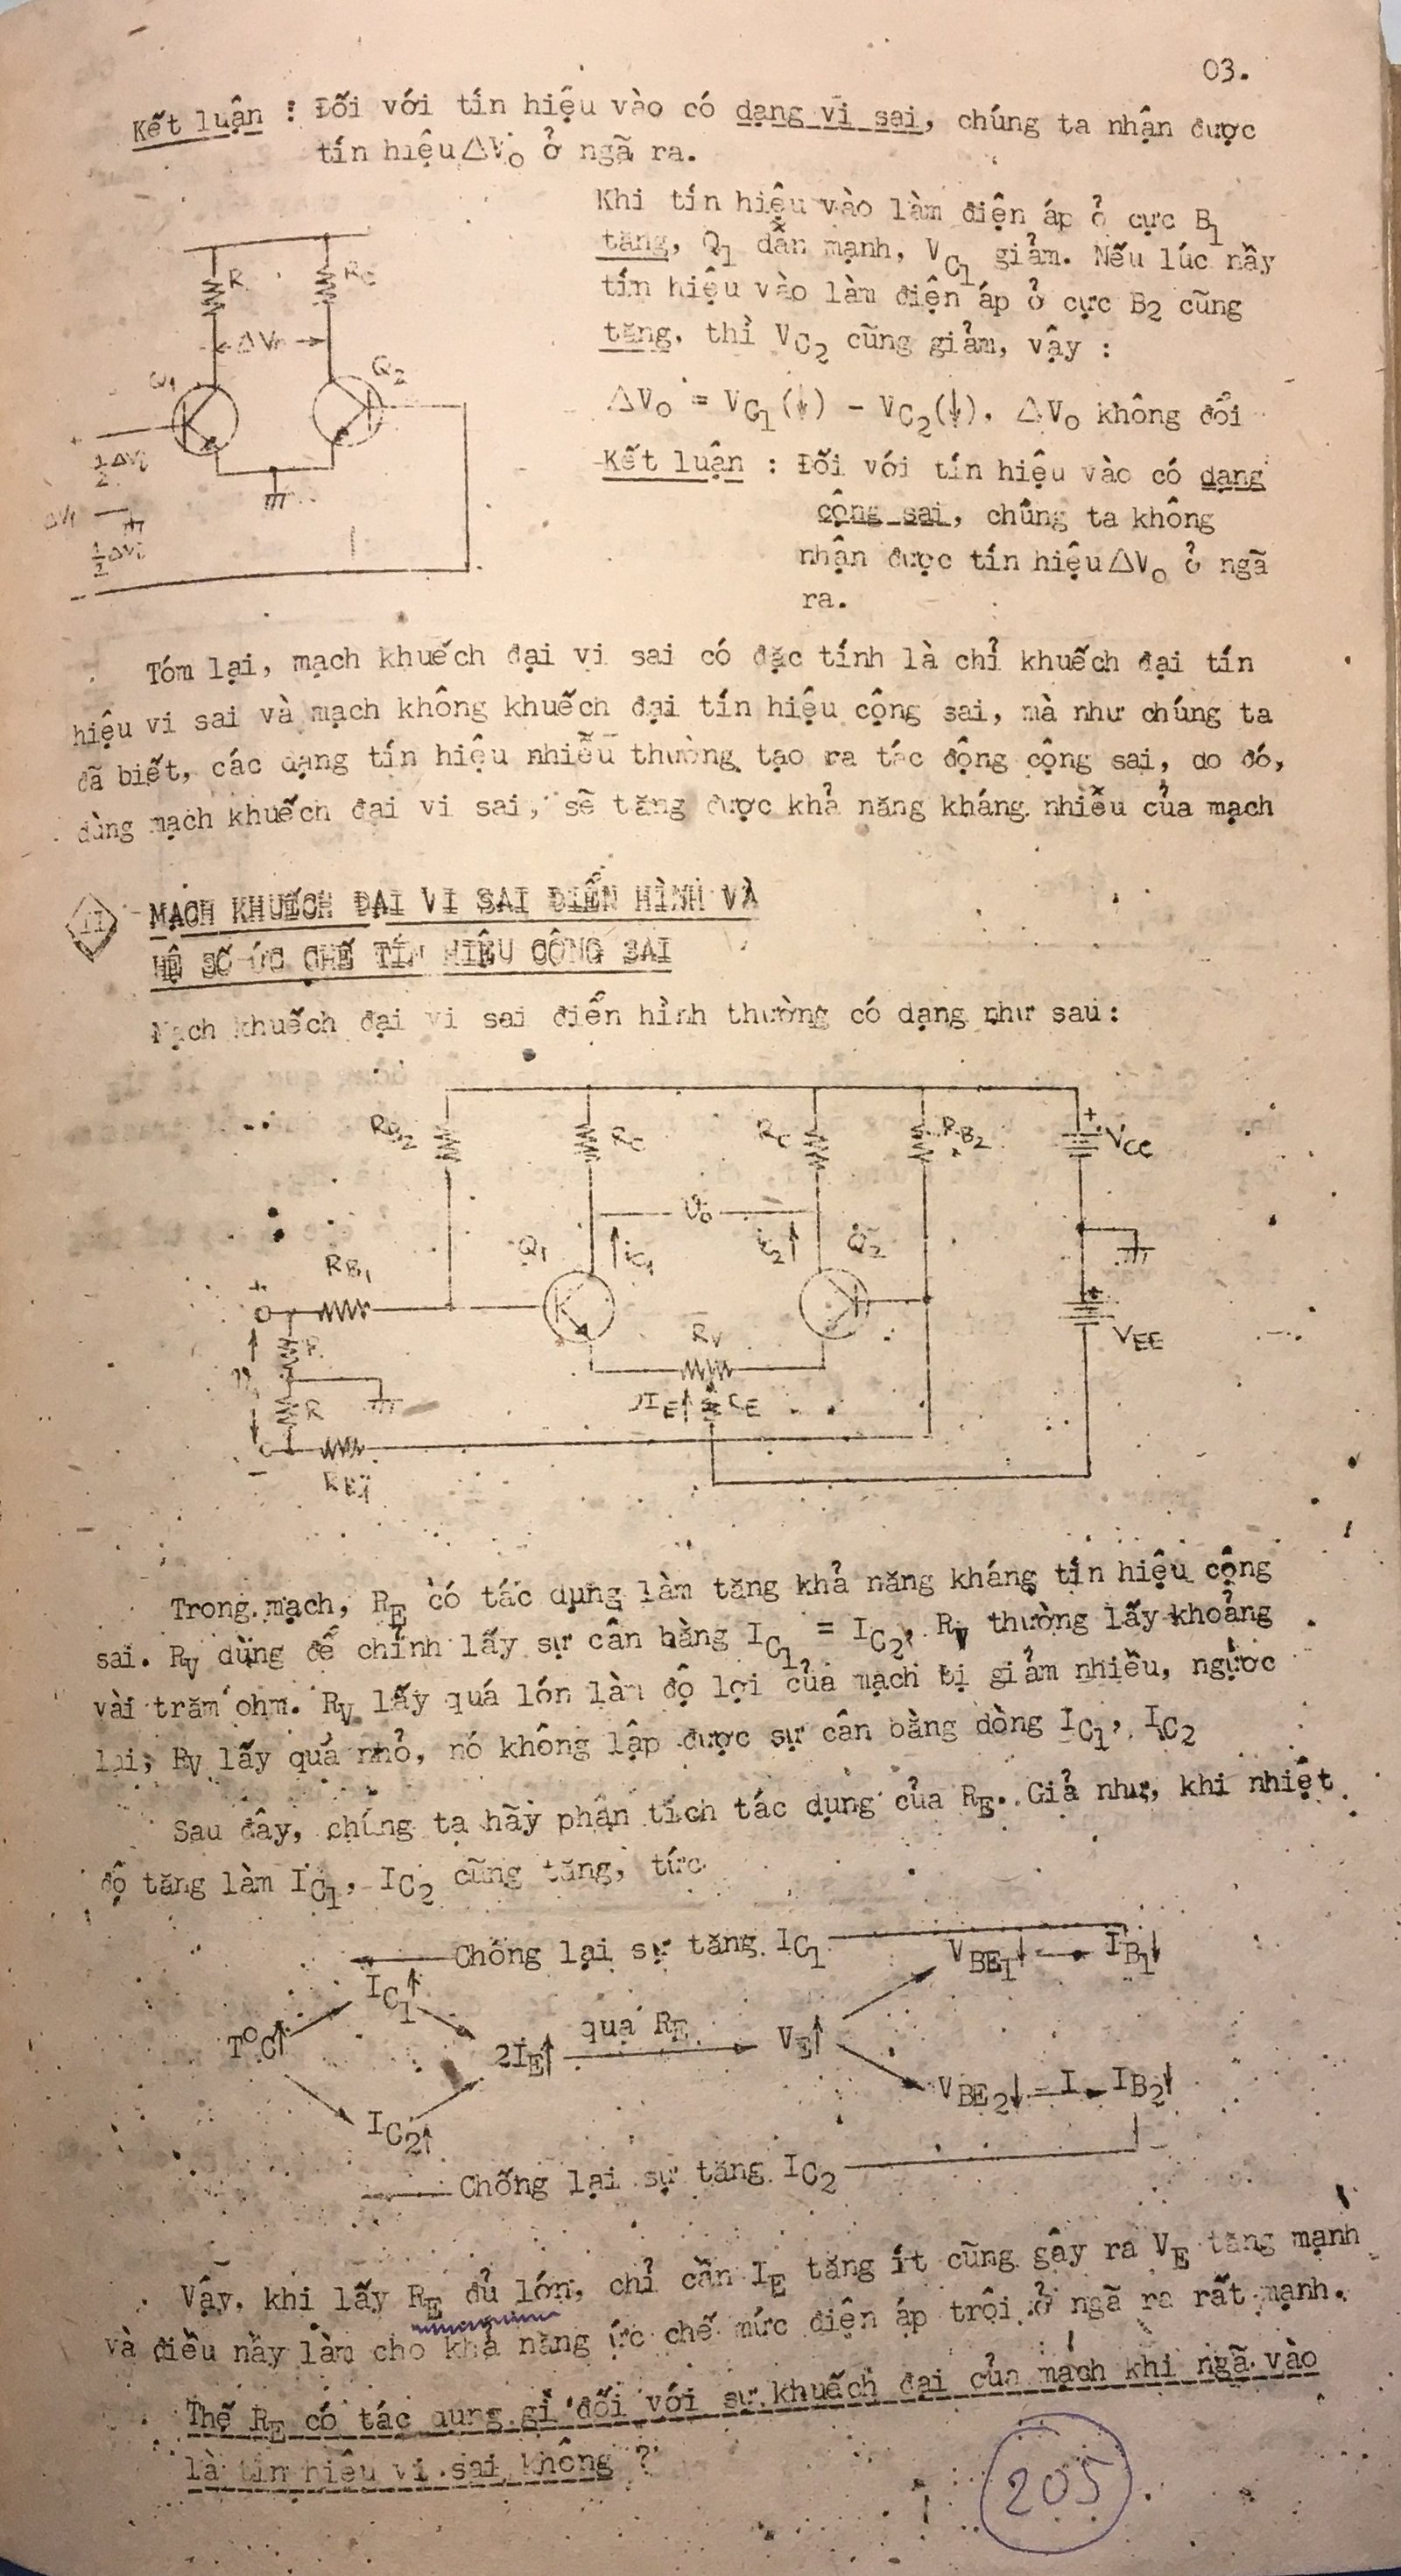 03.
Kết luận : Đối với tín hiệu vào có dạng vi sai, chúng ta nhận được
tín hiệu △Vo ở ngã ra.
Khi tín hiệu vào làm điện áp ở cực B1
tăng, Q1 dẫn mạnh, VC1 giảm. Nếu lúc nầy
tín hiệu vào làm điện áp ở cực B2 cũng
tăng, thì VC2 cũng giảm, vậy :
△Vo = VC1(↓) - VC2(↓). △Vo không đổi
Kết luận : Đối với tín hiệu vào có dạng
cộng sai, chúng ta không
nhận được tín hiệu △Vo ở ngã
ra.
R
RC
Q1
Q2
½ΔVi
ΔVi
½ΔVi
Tóm lại, mạch khuếch đại vi sai có đặc tính là chỉ khuếch đại tín
hiệu vi sai và mạch không khuếch đại tín hiệu cộng sai, mà như chúng ta
đã biết, các dạng tín hiệu nhiễu thường tạo ra tác động cộng sai, do đó,
dùng mạch khuếch đại vi sai, sẽ tăng được khả năng kháng nhiễu của mạch
II MẠCH KHUẾCH ĐẠI VI SAI ĐIỂN HÌNH VÀ
HỆ SỐ ỨC CHẾ TÍN HIỆU CỘNG SAI
Mạch khuếch đại vi sai điển hình thường có dạng như sau:
RB2
RC
RC
RB2
+
VCC
Vo
Q1
iC1
iC2
Q2
RB1
+
R
R
-
RV
+
VEE
Trong mạch, RE có tác dụng làm tăng khả năng kháng tín hiệu cộng
sai. RV dùng để chỉnh lấy sự cân bằng IC1 = IC2, RV thường lấy khoảng
vài trăm ohm. RV lấy quá lớn làm độ lợi của mạch bị giảm nhiều, ngược
lại, RV lấy quá nhỏ, nó không lập được sự cân bằng dòng IC1, IC2
Sau đây, chúng ta hãy phân tích tác dụng của RE. Giả như, khi nhiệt
độ tăng làm IC1, IC2 cũng tăng, tức
Chống lại sự tăng IC1
VBE1↓ → IB1↓
IC1↑
T°C↑
2IE↑
qua RE
VE↑
VBE2↓ → IB2↓
IC2↑
Chống lại sự tăng IC2
Vậy, khi lấy RE đủ lớn, chỉ cần IE tăng ít cũng gây ra VE tăng mạnh
và điều nầy làm cho khả năng ức chế mức điện áp trội ở ngã ra rất mạnh.
Thế RE có tác dụng gì đối với sự khuếch đại của mạch khi ngã vào
là tín hiệu vi sai không ?
205